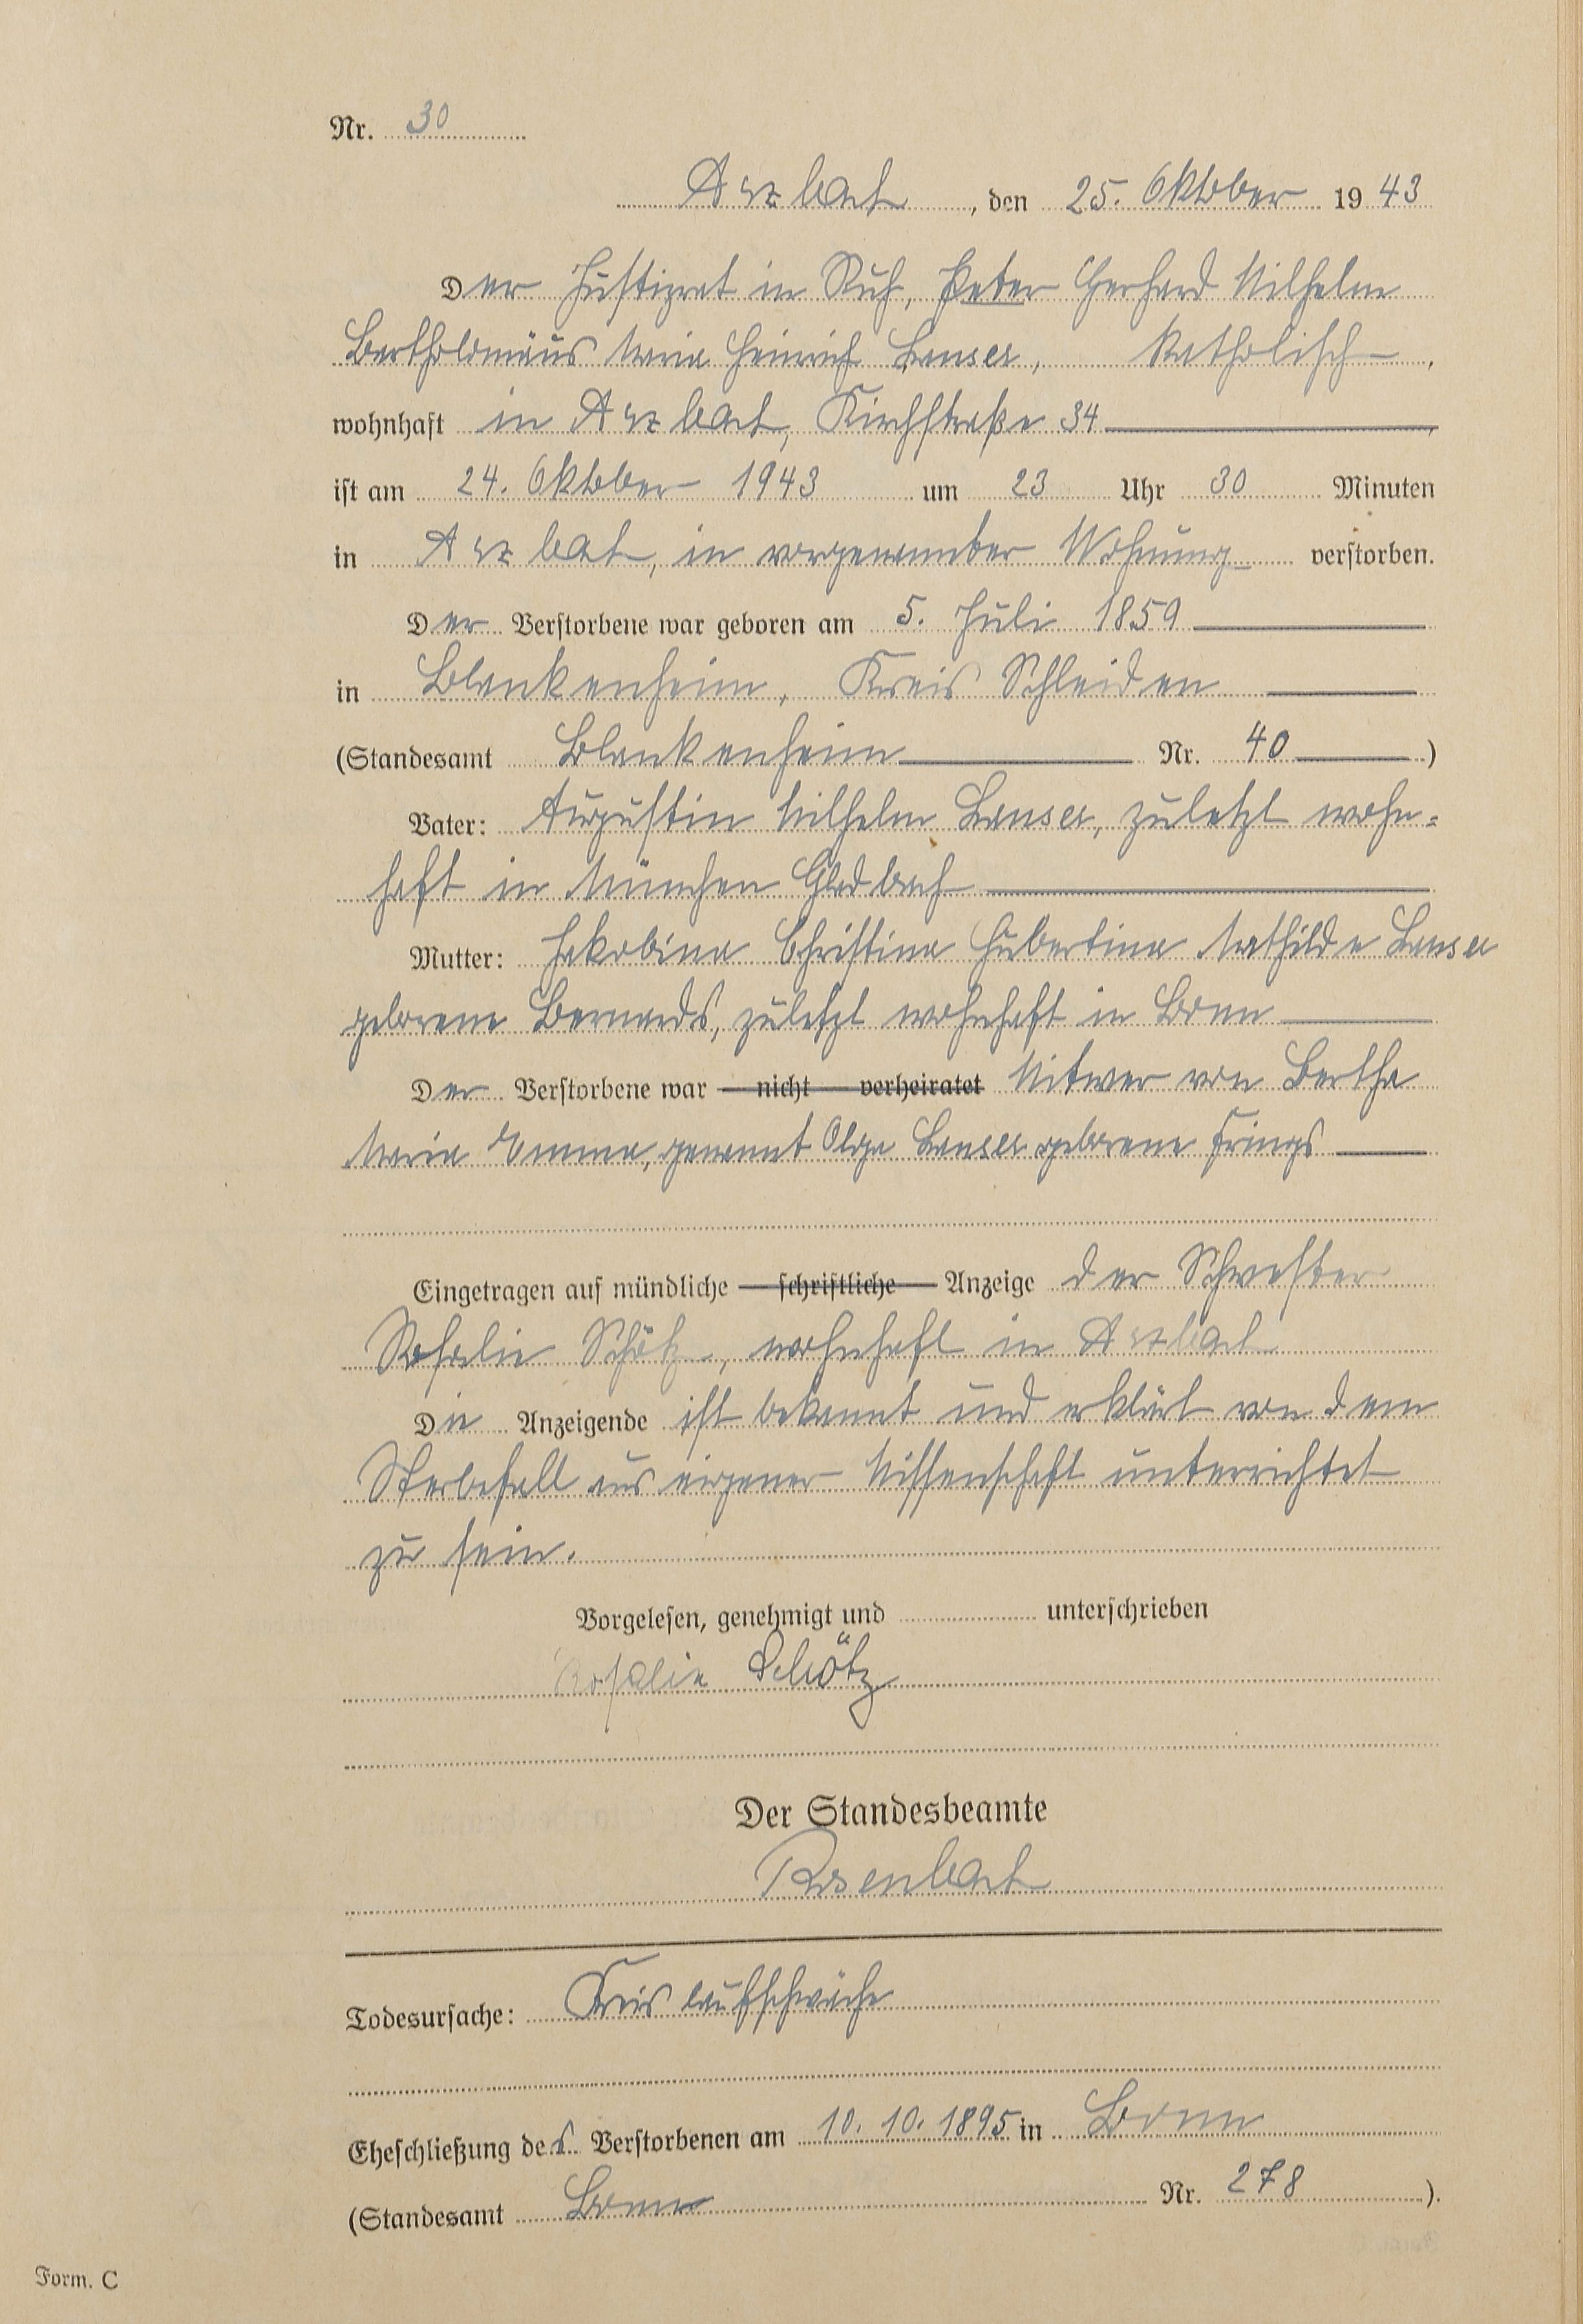 Nr. 30
Arzbach, den 25. Oktober 1943
Der Justizrat in Ruh, Peter Gerhard Wilhelm
Bartholomäus Maria Heinrich Lanser, katholisch,
wohnhaft in Arzbach, Kirchstraße 34
ist am 24. Oktober 1943 um 23 Uhr 30 Minuten
in Arzbach, in vorgenannter Wohnung verstorben.
Der Verstorbene war geboren am 5. Juli 1859
in Blankenheim, Kreis Schleiden
(Standesamt Blankenheim Nr. 40)
Vater: Augustin Wilhelm Lanser, zuletzt wohn=
haft in München Gladbach
Mutter: Jakobina Christina Hubertina Mathilde Lanser
geborene Bernards, zuletzt wohnhaft in Bonn
Der Verstorbene war nicht verheiratet Witwer von Bertha
Maria Emma, genannt Olga Lanser geborene Frings
Eingetragen auf mündliche schriftliche Anzeige der Schwester
Rosalie Schötz, wohnhaft in Arzbach
Die Anzeigende ist bekannt und erklärt von dem
Sterbefall aus eigener Wissenschaft unterrichtet
zu sein.
Vorgelesen, genehmigt und unterschrieben
Rosalie Schötz
Der Standesbeamte
Rosenbach
Todesursache: Kreislaufschwäche
Eheschließung des Verstorbenen am 10. 10. 1895 in Bonn
(Standesamt Bonn Nr. 278).
Form. C